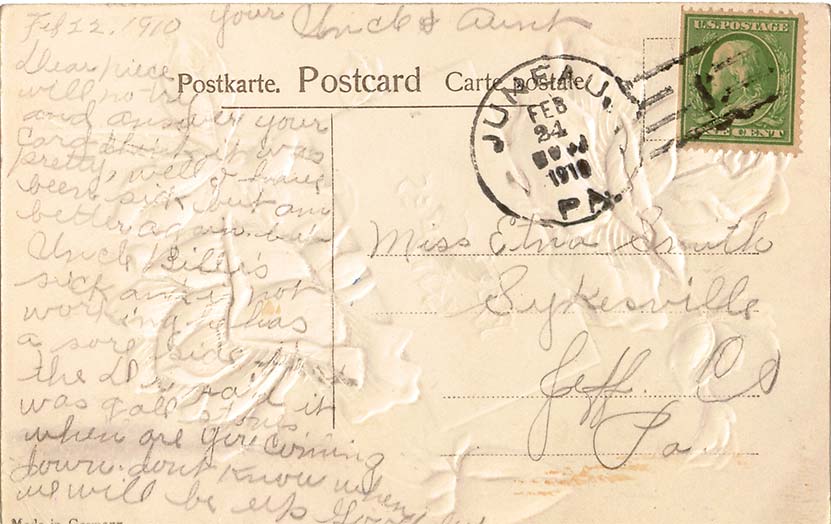 Feb 22. 1910 your Uncle & Aunt
Dear piece
will
and answer your
card think it was
pretty, well I have
been sick but am
better again. but
Uncle Bill is
sick and is not
working he has
a sore side
the Dr. said it
was gall stones
when are you coming
down. dont know when
we will be up Good
Made in Germany
Postkarte. Postcard Carte postale.
JUNEAU.
FEB
24
1910
PA.
U.S. POSTAGE
ONE CENT
Miss Etna Smith
Sykesville
Jeff. Co
Pa.